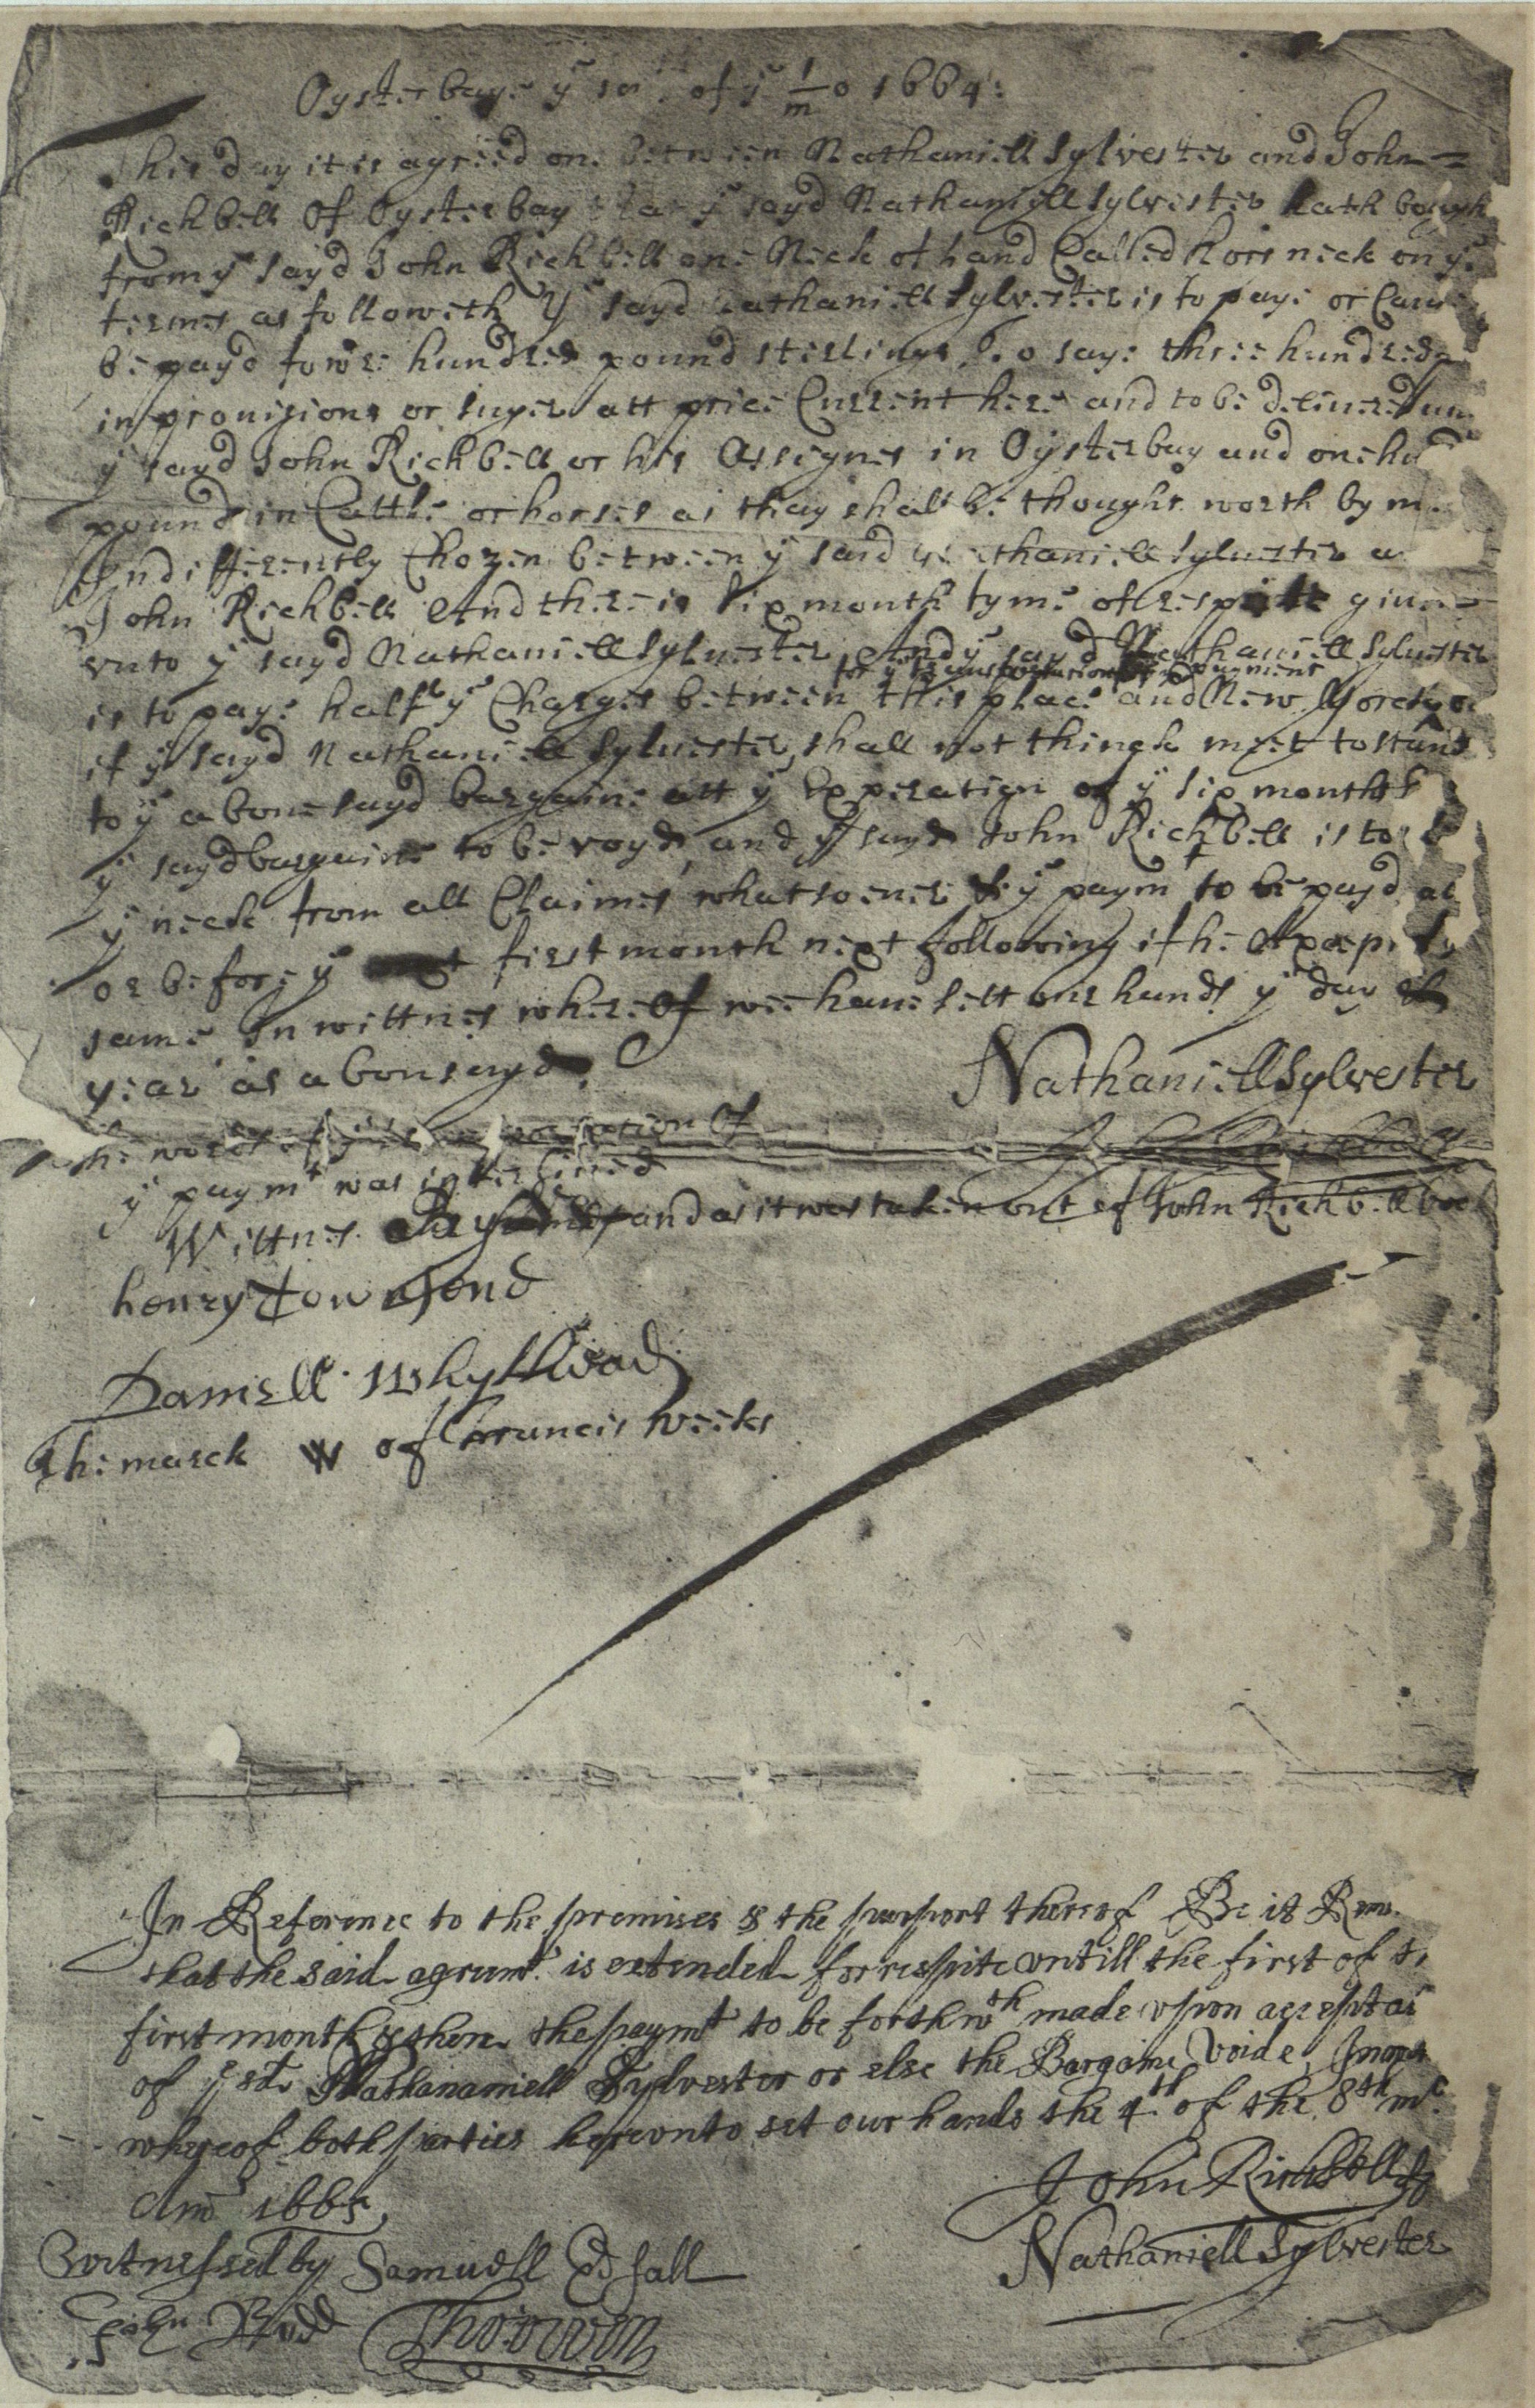 Oysterbaye yᵉ of yᵉ 1/mo 1664:
This day it is agreed on betwien Nathaniell Sylvester and John
Richbell Of Oysterbay that yᵉ sayd Nathaniell Sylvester hath bough
from yᵉ sayd John Richbell one Neck of Land Called hors neck on yᵉ
termes as followeth yᵉ sayd Nathaniell Sylvester is to paye or Caus
be payd fowre hundred pound sterlinge, To saye three hundred
in provisions or suger att price Current here and to be deliuered un
yᵉ sayd John Richbell or his Assignes in Oysterbay and one hu
pound in Cattle or horses as thay shall be thought worth by m
Indifferently Chozen between yᵉ said Nathaniell Syluester a
John Richbell And there is six month tyme of respite giuen
vnto yᵉ sayd Nathaniell Syluester, And yᵉ sayd Nathaniell Syluester
for yᵉ transportation of payment
is to paye half yᵉ Charges between this place and New
if yᵉ sayd Nathaniell Syluester, shall not thinck meet to stand
to yᵉ aboue sayd bargaine att yᵉ Experation of yᵉ six months
yᵉ sayd bargaine to be voyd, and yᵉ sayd John Richbell is to
yᵉ neck from all Claimes whatsoeuer yᵉ paymᵗ to be payd at
or before yᵉ first month next following if he Except yᵉ
same In wittnes whereof wee haue sett our hands yᵉ day
year as abousayd
Nathaniell Sylvester
The words of yᵉ transportation Of
yᵉ paymᵗ was interlined
Wittnes and as it was taken out of John Richbell book
henry Townsend
Daniell Whythead
The marck W of Francis Weeks
In Reference to the premises & the purport thereof Be it Rem.
that the said agreemᵗ. is extended for respite vntill the first of th
first month & then the paymᵗ to be forthwᵗʰ made vpon acceptai
of yᵉ sd. Nathananiell Sylvester or else the Bargaine Voide,
whereof both parties herevnto set our hands the 4ᵗʰ of the 8ᵗʰ mᵒ.
Anᵒ 1665,
John Richbell
Nathaniell Sylvester
Witnessed by Samuell Edsall
John Budd